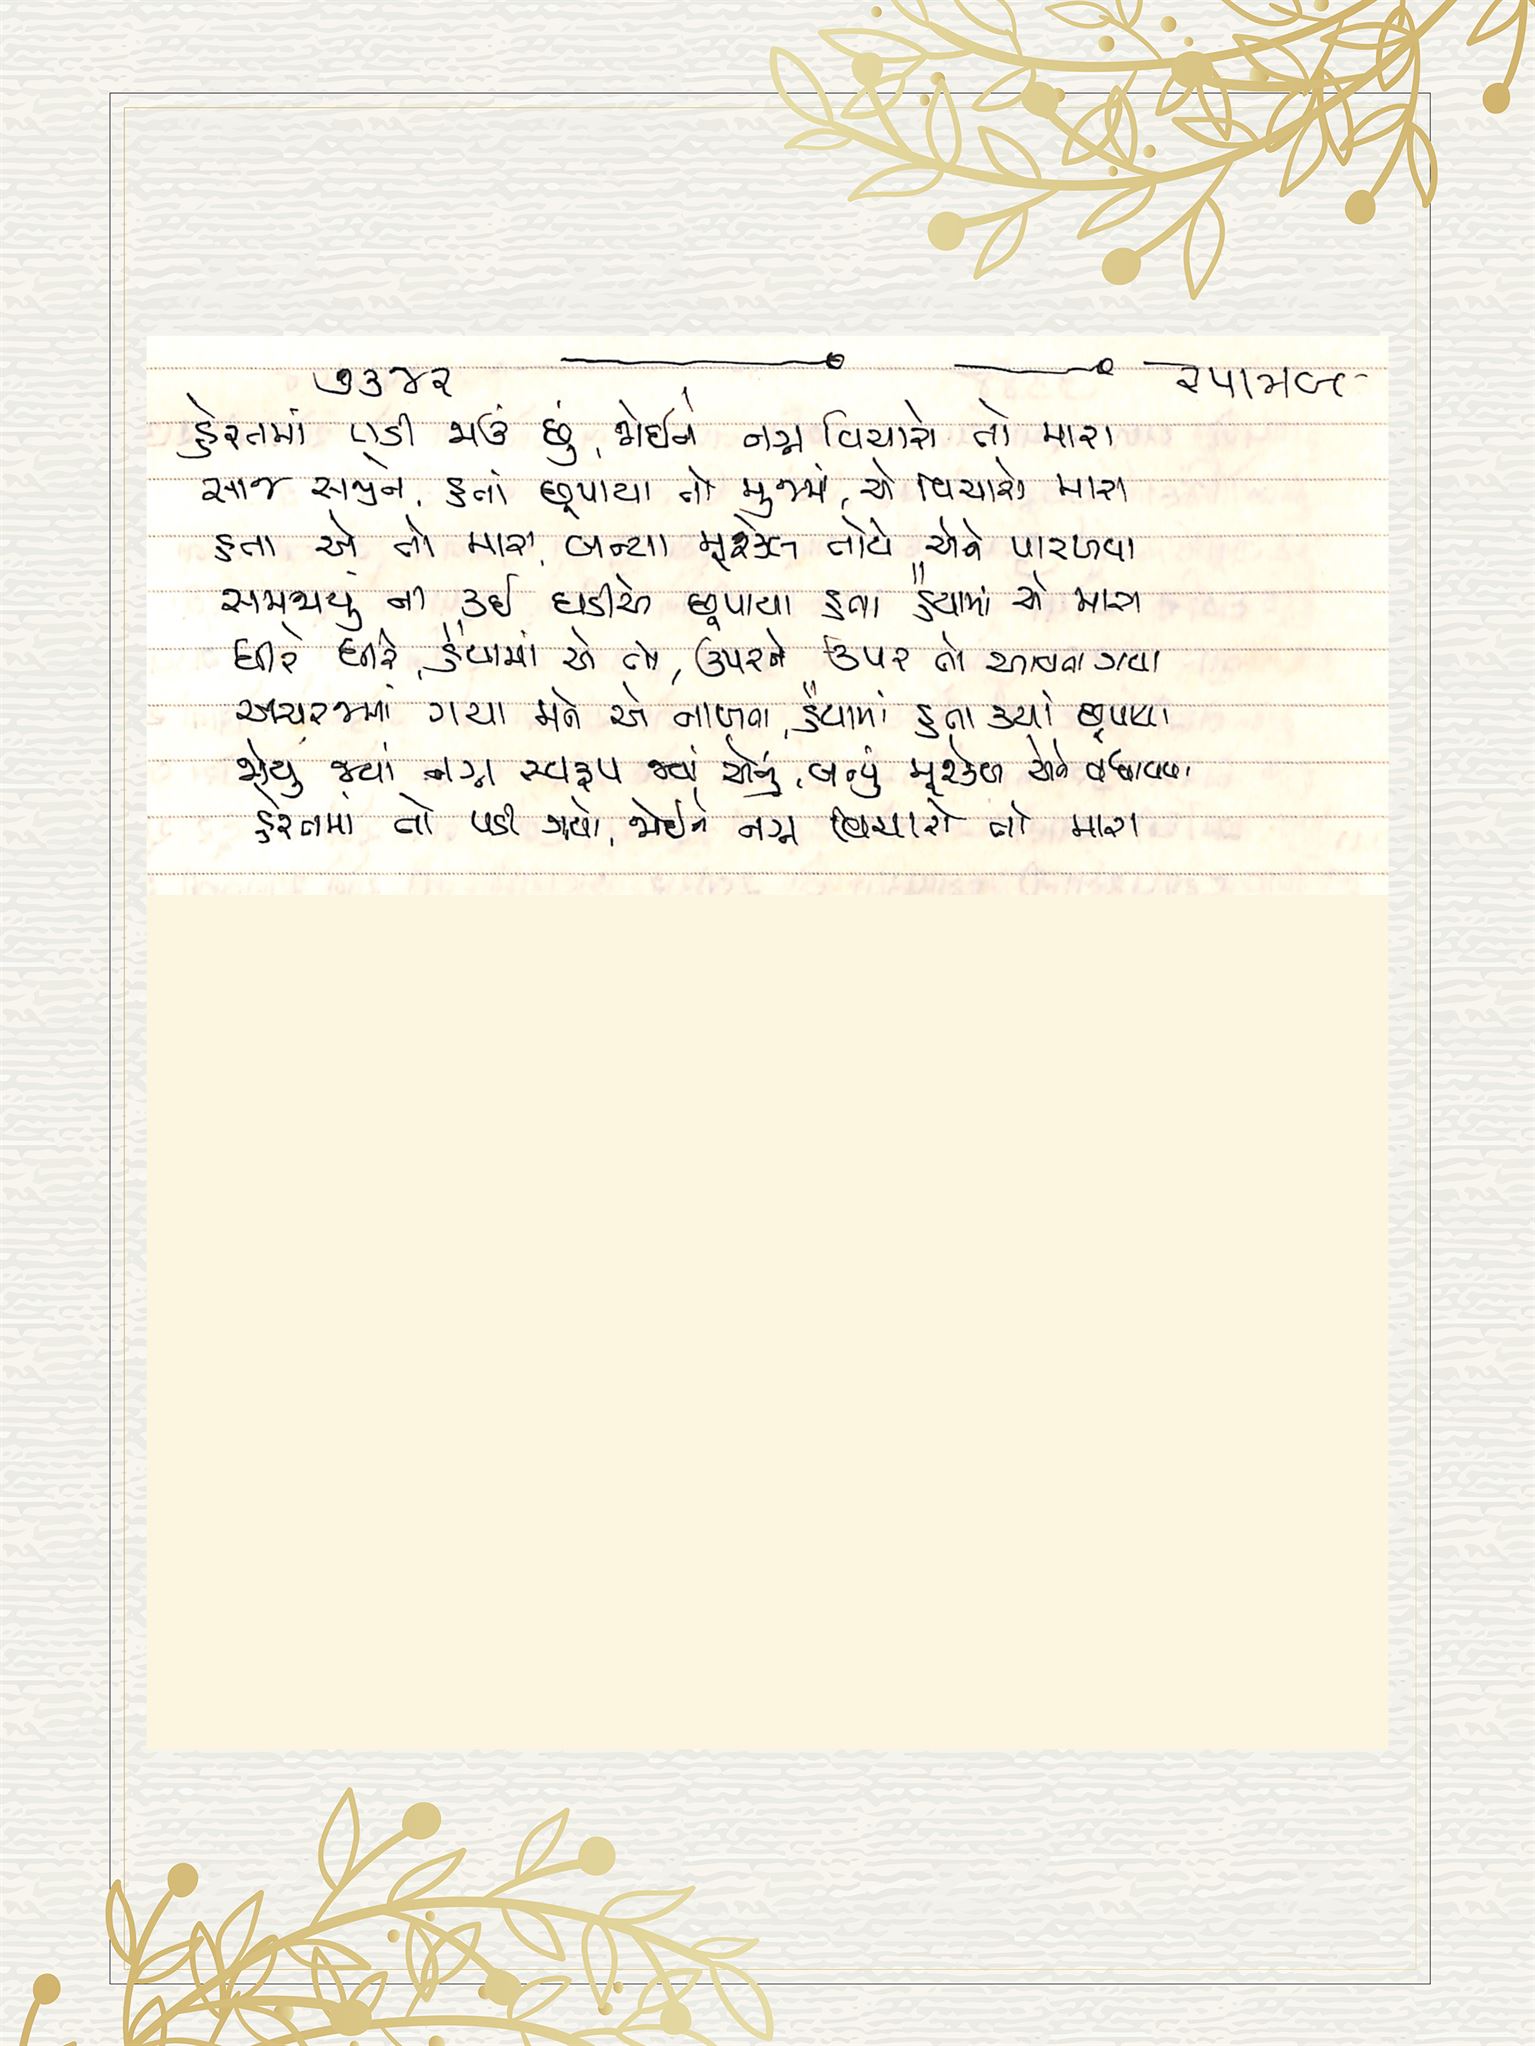 ૭૩૪૨
હેરતમાં પડી જાઉં છું, જોઈને નગ્ન વિચારો તો મારા
સાજ સજીને, હતાં છૂપાયા તો મુજમાં, એ વિચારો મારા
હતા એ તો મારા, બન્યા મૂશ્કેલ તોયે એને પારખવા
સમજાયું ના કઈ ઘડીએ છૂપાયા હતા હૈયામાં એ મારા
ધીરે ધીરે, હૈયામાં એ તો, ઉપરને ઉપર તો આવતા ગયા
અચરજમાં ગયા મને એ નાખતા, હૈયામાં હતા ક્યાં છૂપાયા
જોયું જ્યાં નગ્ન સ્વરૂપ જ્યાં એનું, બન્યું મૂશ્કેલ એને
હેરતમાં તો પડી ગયો, જોઈને નગ્ન વિચારો તો મારા